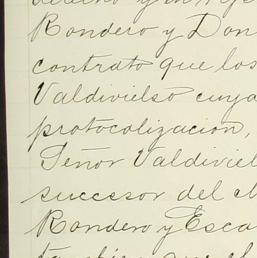 Rondero y Don
contrato que los
Valdivielso cuya
protocolizacion,
Señor Valdiviel
successor del
Rondero y Esca